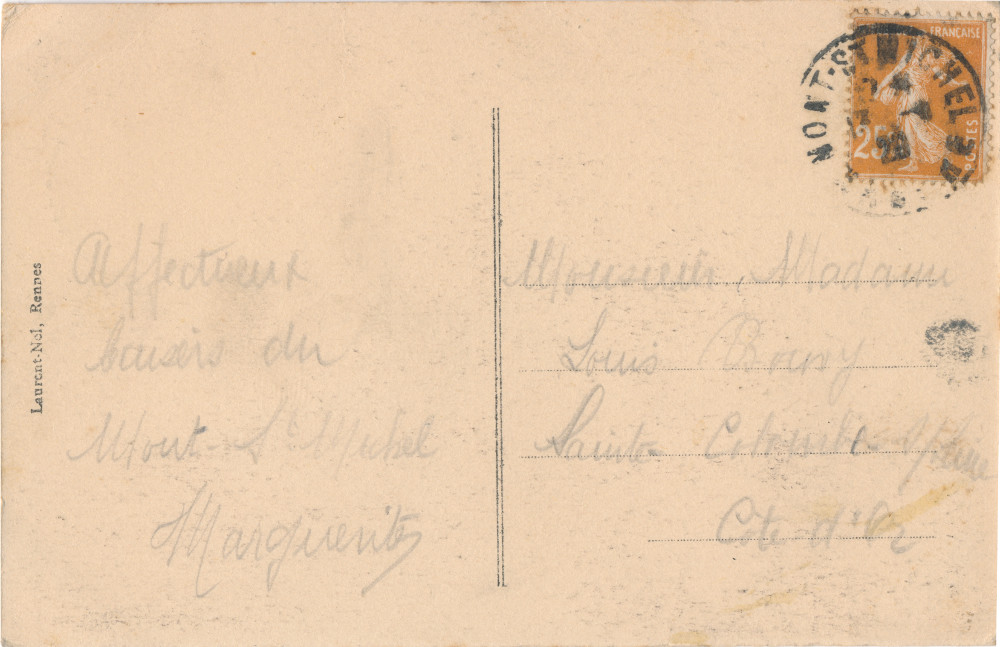 Laurent-Nel, Rennes
Affectueux
baisers du
Mont-St Michel
Marguerite
MONT-ST MICHEL
28
FRANÇAISE
25
POSTES
Monsieur Madame
Louis
Sainte Colombe s/Seine
Côte d'Or